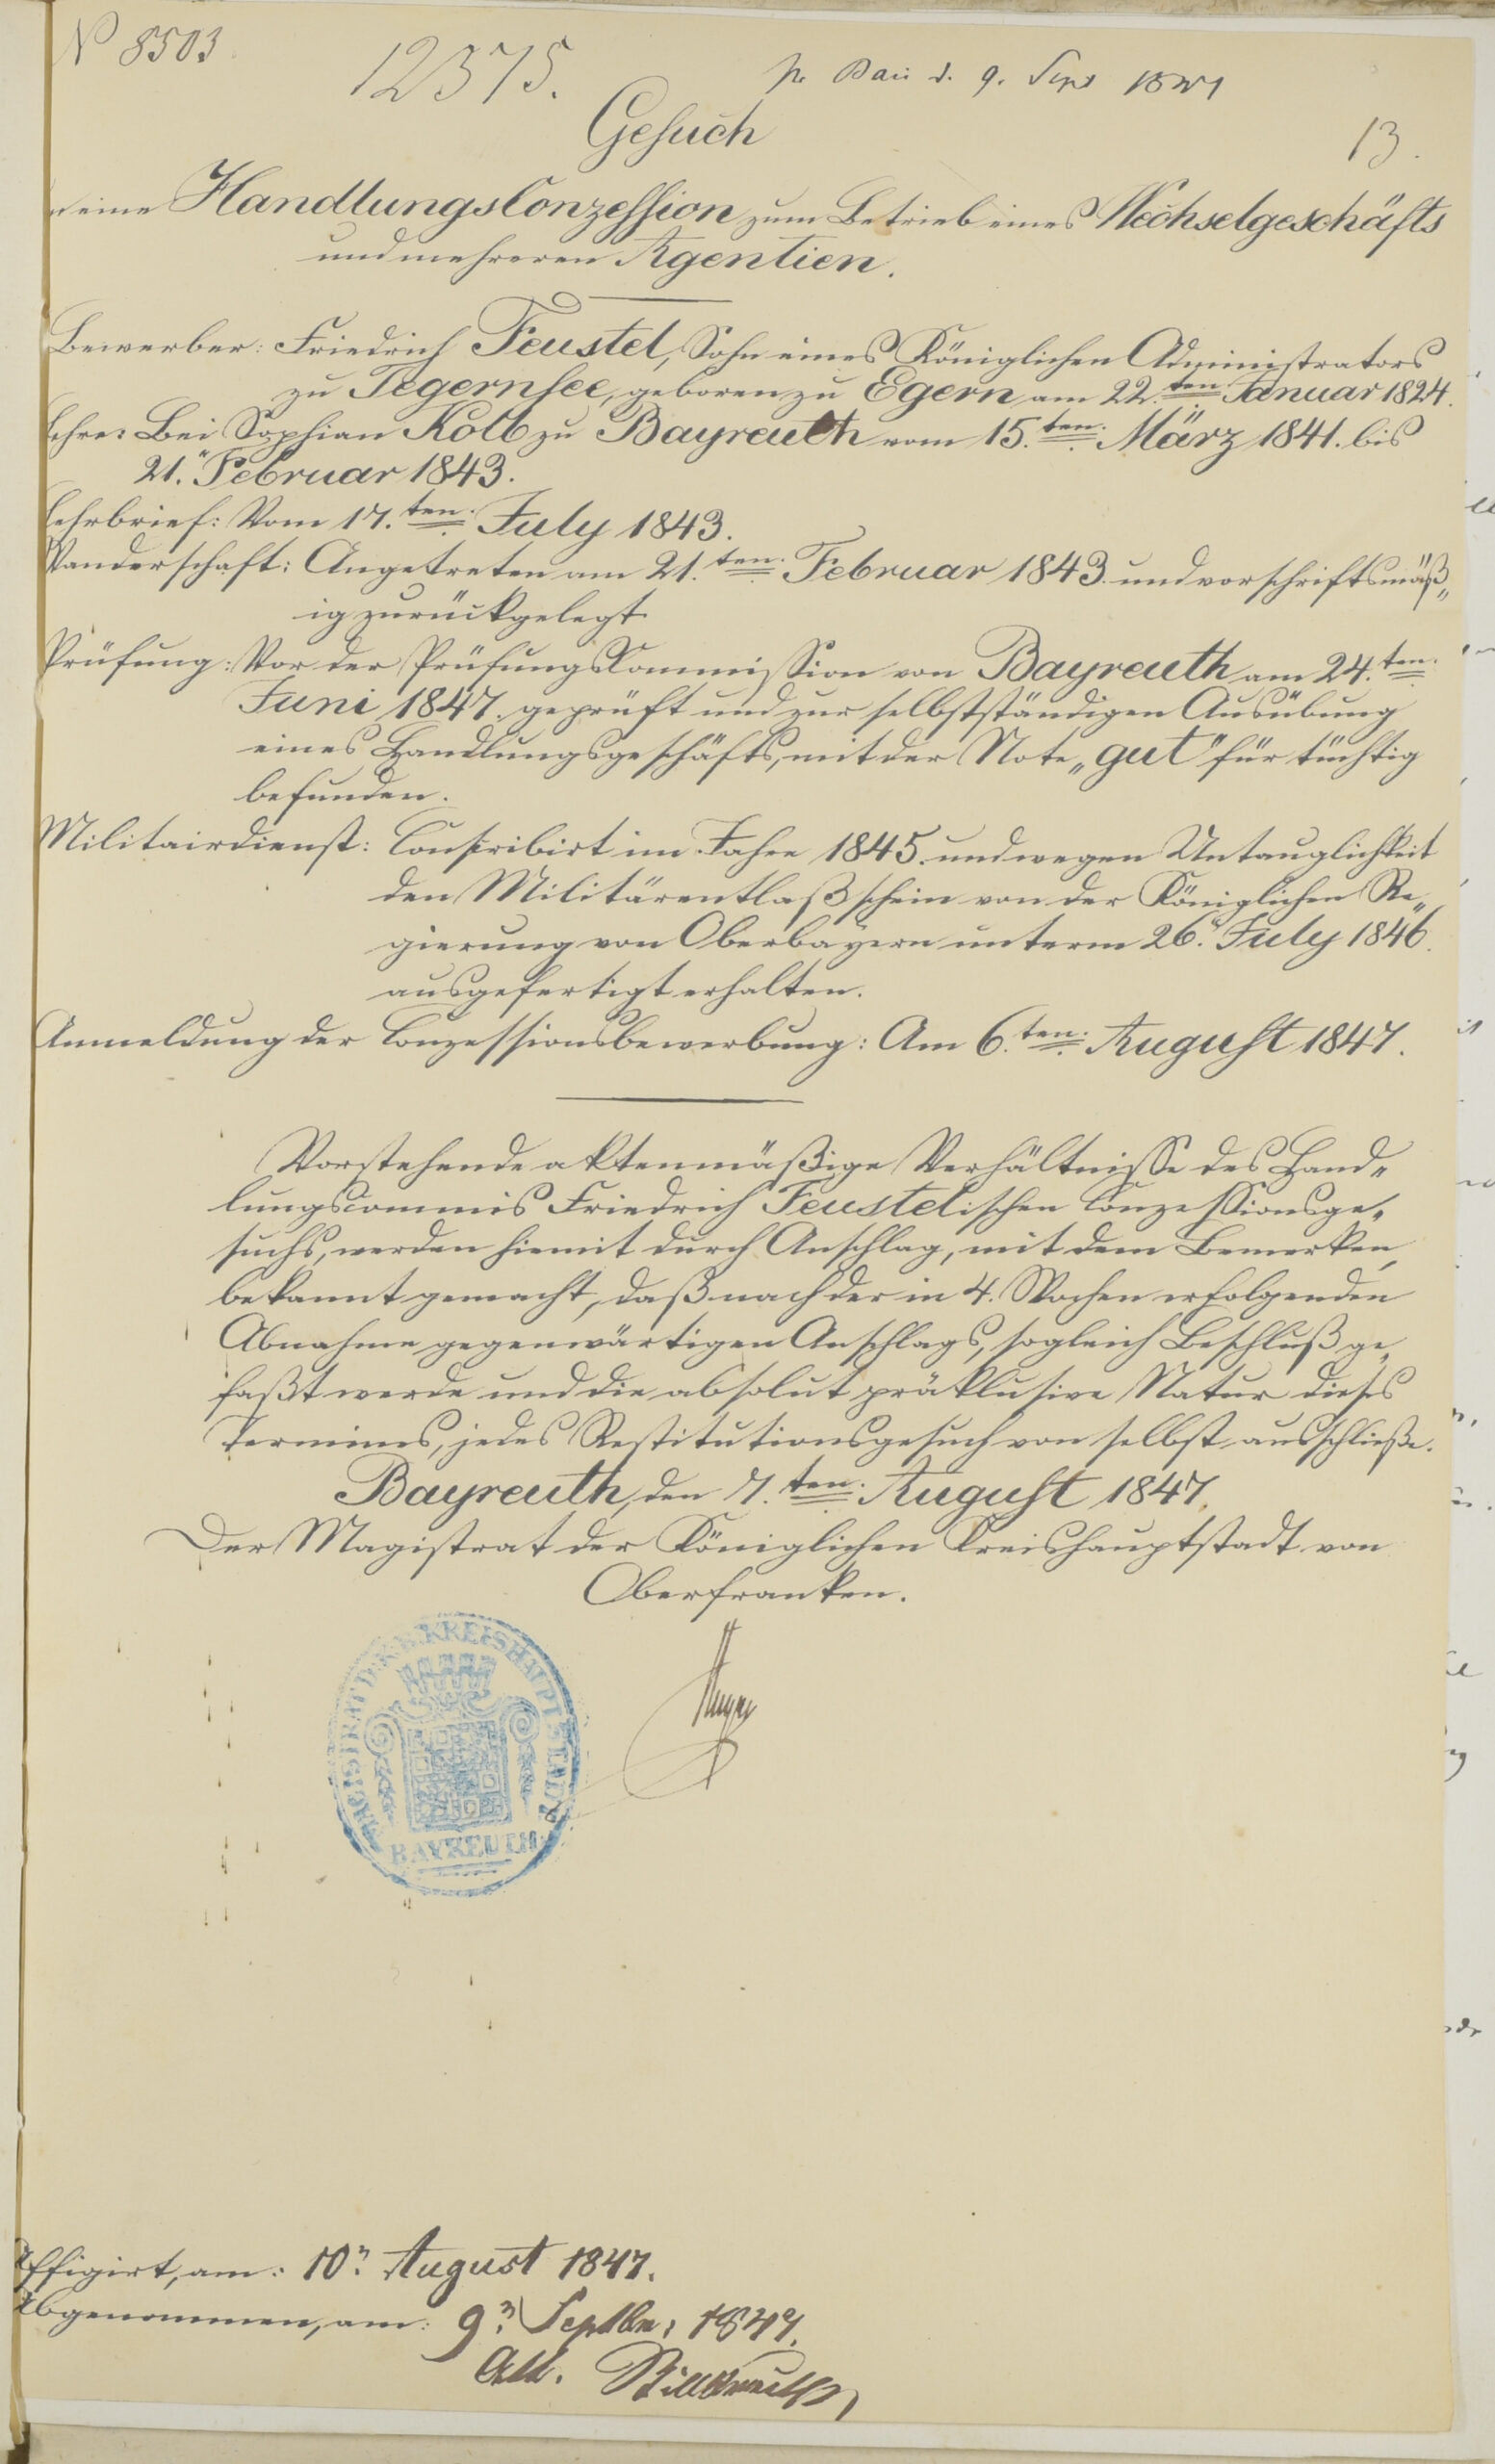 N 8503
12375.
pr. d. 9. Sept 1847
13.
Gesuch
eine HandlungsConzession zum Betrieb eines Wechselgeschäfts
und mehreren Agentien.
Bewerber: Friedrich Feustel, Sohn eines Königlichen Administrators
zu Tegernsee, geboren zu Egern am 22.ten Januar 1824.
Lehre: Bei Sophian Kolb zu Bayreuth vom 15.ten März 1841. bis
21. Februar 1843.
Lehrbrief: Vom 17.ten July 1843.
Wanderschaft: Angetreten am 21.ten Februar 1843. und vorschriftsmäß„
ig zurückgelegt.
Prüfung: Vor der PrüfungsCommission von Bayreuth am 24.ten
Juni 1847. geprüft und zur selbstständigen Ausübung
eines Handlungsgeschäfts, mit der Note „gut" für tüchtig
befunden.
Militairdienst: Conscribirt im Jahre 1845. und wegen Untauglichkeit
den Militärentlaßschein von der Königlichen Re„
gierung von Oberbayern unterm 26. July 1846.
ausgefertigt erhalten.
Anmeldung der Conzessionsbewerbung: Am 6.ten August 1847.
Vorstehende aktenmäßige Verhältnisse des Hand„
lungscommis Friedrich Feustelischen Conzessionsge„
suchs, werden hiemit durch Anschlag, mit dem Bemerken
bekannt gemacht, daß nach der in 4. Wochen erfolgenden
Abnahme gegenwärtigen Anschlags, sogleich Beschluß ge„
faßt werde und die absolut präklusive Natur dieses
Termines, jedes Restitutionsgesuch von selbst ausschließe.
Bayreuth, den 7.ten August 1847.
Der Magistrat der Königlichen Kreishauptstadt von
Oberfranken.
MAGISTRAT DER K. B. KREISHAUPTSTADT
BAYREUTH
Affigirt, am: 10. August 1847.
Abgenommen, am: 9. Septbr. 1847.